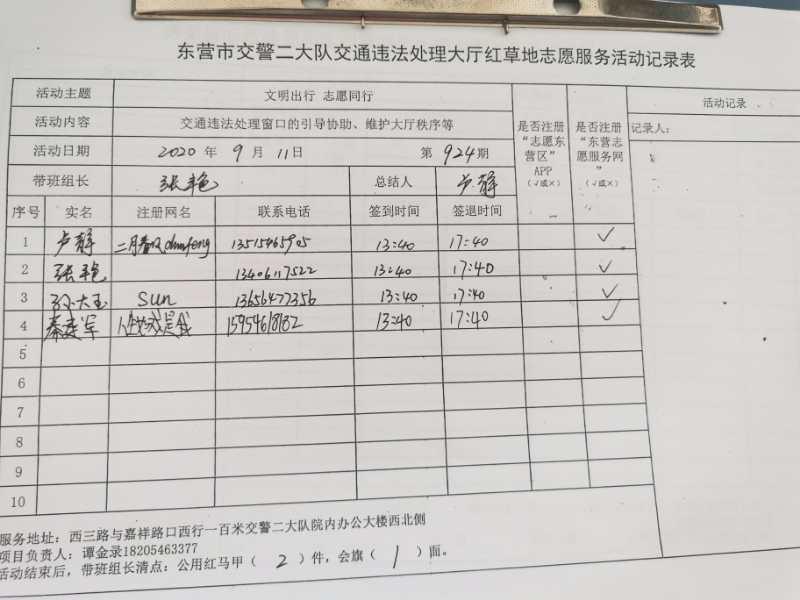 东营市交警二大队交通违法处理大厅红草地志愿服务活动记录表
活动主题 文明出行 志愿同行 是否注册“志愿东营区”APP（√或×） 是否注册“东营志愿服务网”（√或×） 活动记录
活动内容 交通违法处理窗口的引导协助、维护大厅秩序等 记录人：
活动日期 2020 年 9 月 11 日 第 924 期
带班组长 张艳 总结人 卢静
序号 实名 注册网名 联系电话 签到时间 签退时间
1 卢静 二月春风 13515465905 13:40 17:40 √
2 张艳 13406117522 13:40 17:40 √
3 孙大玉 sun 13656477356 13:40 17:40 √
4 秦建军 15954618182 13:40 17:40 √
5
6
7
8
9
10
服务地址：西三路与嘉祥路口西行一百米交警二大队院内办公大楼西北侧
项目负责人：谭金录18205463377
活动结束后，带班组长清点：公用红马甲（ 2 ）件，会旗（ 1 ）面。